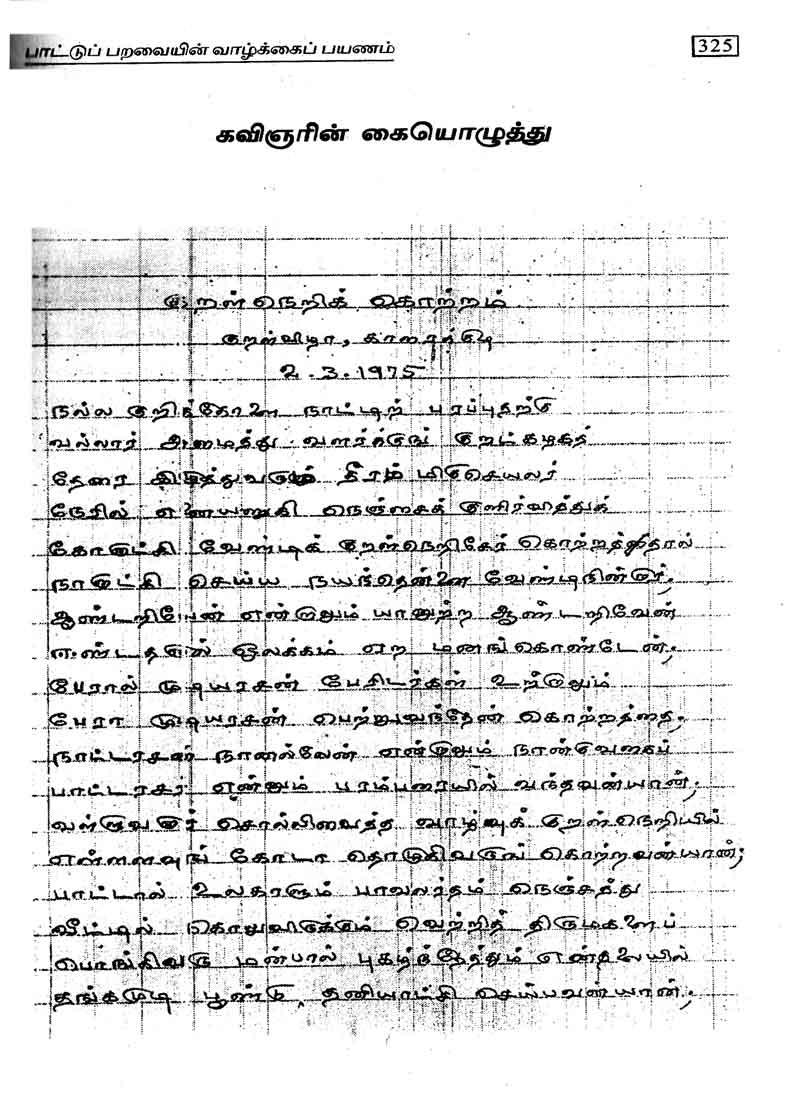 பாட்டுப் பறவையின் வாழ்க்கைப் பயணம்
325
கவிஞரின் கையொழுத்து
குறள்நெறிக் கொற்றம்
குறள்விழா, காரைக்குடி
2.3.1975
நல்ல குறிக்கோளை நாட்டிற் பரப்புதற்கு
வல்லார் அமைத்து வளர்க்குங் குறட்கழகத்
தேரை இழுத்துவரும் தீரம் மிகுசெயலர்
நேரில் எனையணுகி நெஞ்சைக் குளிர்வித்துக்
கோலாட்சி வேண்டிக் குறள்நெறிசேர் கொற்றத்தால்
நாலாட்சி செய்ய நயந்தென்னை வேண்டிநின்றார்;
ஆண்டறியேன் என்றாலும் யானுற்ற ஆண்டறிவேன்
ஓலக்கம் ஏற மனங்கொண்டேன்;
பேரால் முடியரசன் பேசிடர்கள் உற்றாலும்
பேரா முடியரசன் பெற்றுவந்தேன் கொற்றத்தை;
நாட்டரசன் நானல்லேன் என்றாலும் நான்குவகைப்
பாட்டரசர் என்னும் பரம்பரையில் வந்தவன்யான்;
வள்ளுவனார் சொல்லிவைத்த வாழ்வுக் குறள்நெறியில்
எள்ளளவுங் கோடா தொழுகிவருங் கொற்றவன்யான்;
பாட்டால் உலகாளும் பாவலர்தம் நெஞ்சத்து
வீட்டில் கொலுவிருக்கும் வெற்றித் திருமகளைப்
பொங்கிவரு மன்பால் புகழ்ந்தேத்தும் என்தலையில்
தங்கமுடி பூண்டு தனியாட்சி செய்பவன்யான்;